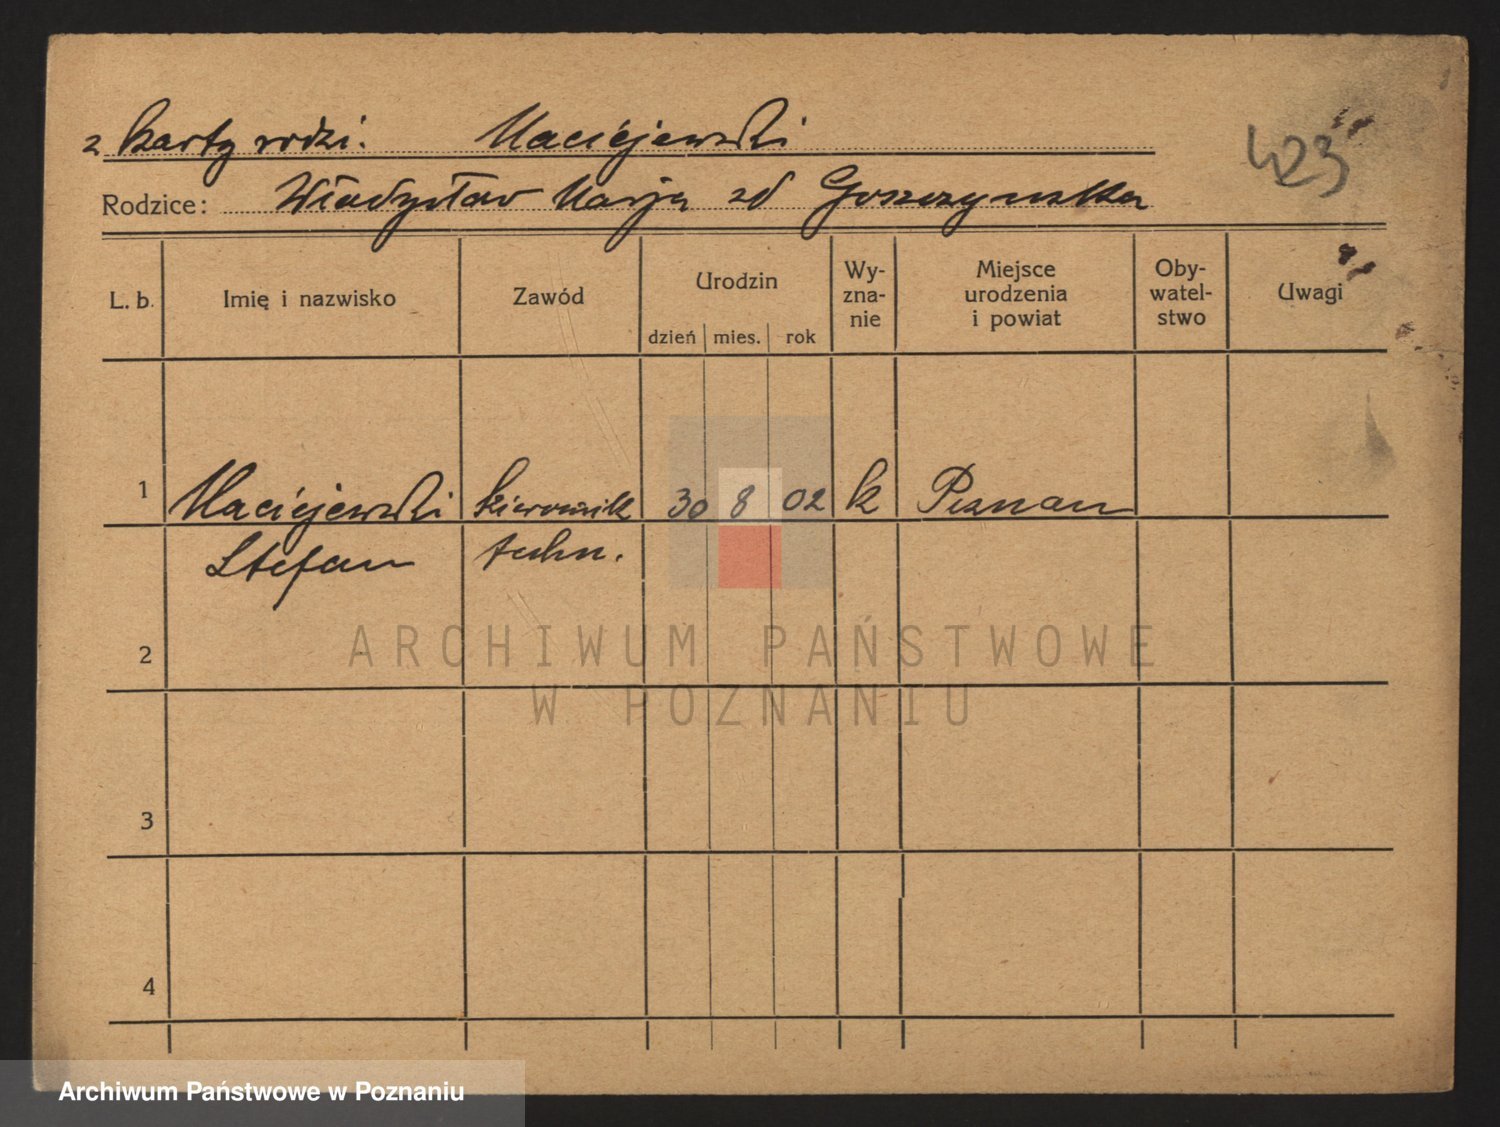 z karty rodzi. Maciejewski
423
Rodzice: Władysław Marja zd Goszczynska
L. b. Imię i nazwisko Zawód Urodzin dzień mies. rok Wy- zna- nie Miejsce urodzenia i powiat Oby- watel- stwo Uwagi
1 Maciejewski kierownik 30 8 02 k Poznan
Stefan techn.
2
3
4
ARCHIWUM PAŃSTWOWE
W POZNANIU
Archiwum Państwowe w Poznaniu